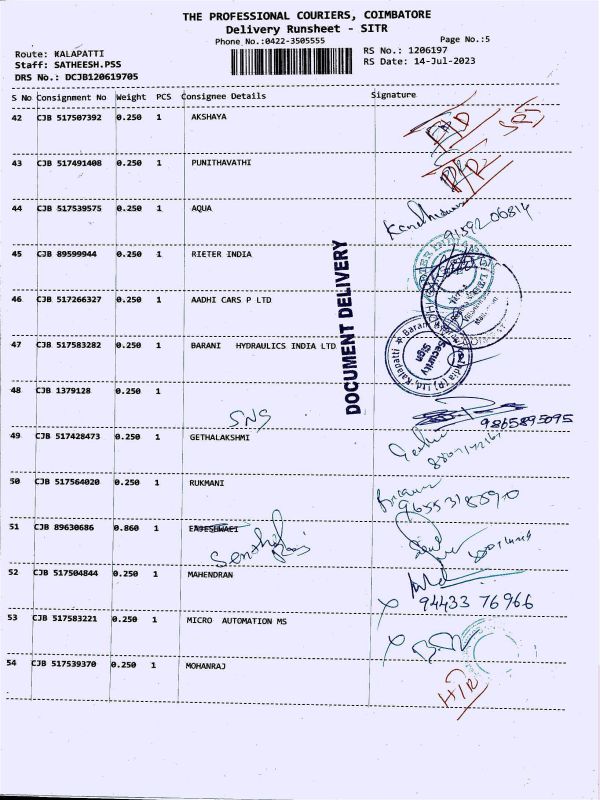 THE PROFESSIONAL COURIERS, COIMBATORE
Delivery Runsheet - SITR
Phone No.:0422-3505555
Page No.:5
Route: KALAPATTI
RS No.: 1206197
Staff: SATHEESH.PSS
RS Date: 14-Jul-2023
DRS No.: DCJB120619705
S No Consignment No Weight PCS Consignee Details Signature
42 CJB 517507392 0.250 1 AKSHAYA
43 CJB 517491408 0.250 1 PUNITHAVATHI
44 CJB 517539575 0.250 1 AQUA
91592 06814
45 CJB 89599944 0.250 1 RIETER INDIA
46 CJB 517266327 0.250 1 AADHI CARS P LTD
47 CJB 517583282 0.250 1 BARANI HYDRAULICS INDIA LTD
Security Sign
DOCUMENT DELIVERY
48 CJB 1379128 0.250 1
SNS
9865895095
49 CJB 517428473 0.250 1 GETHALAKSHMI
50 CJB 517564020 0.250 1 RUKMANI
51 CJB 89630686 0.860 1
52 CJB 517504844 0.250 1 MAHENDRAN
94433 76966
53 CJB 517583221 0.250 1 MICRO AUTOMATION MS
54 CJB 517539370 0.250 1 MOHANRAJ